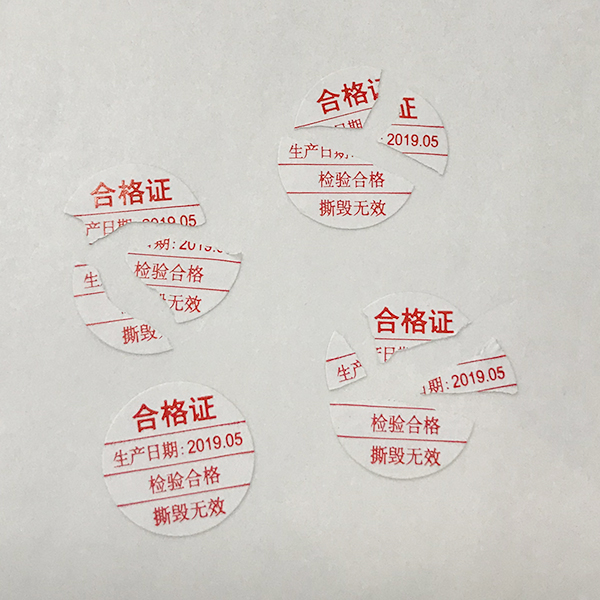 合格证
2019.05
生产日期:
检验合格
撕毁无效
合格证
产日期: 2019.05
期: 2019.0
生
检验合格
毁无效
撕毁
合格证
生产
日期
期: 2019.05
检验合格
撕毁无效
合格证
生产日期: 2019.05
检验合格
撕毁无效